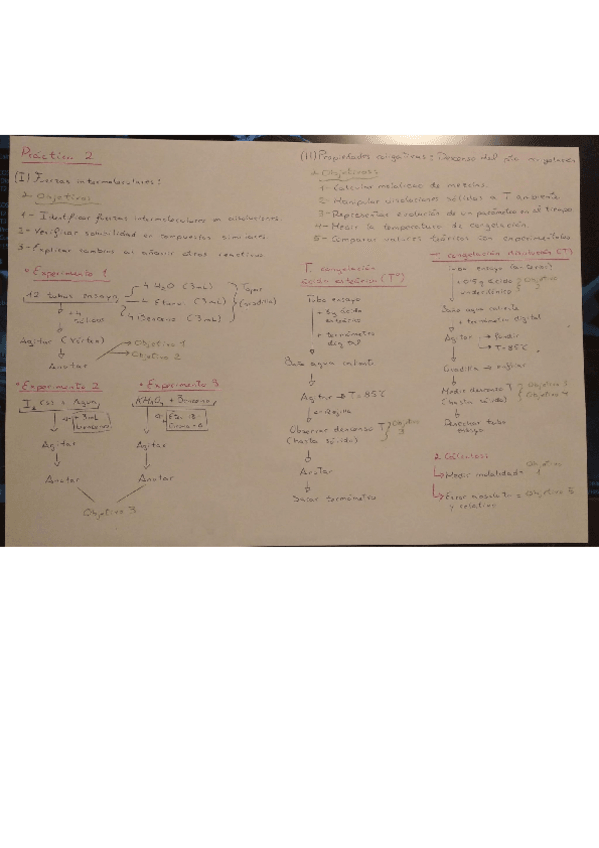 Práctica 2
(I) Fuerzas intermoleculares:
Objetivos
1- Identificar fuerzas intermoleculares en disoluciones.
2- Verificar solubilidad en compuestos similares.
3- Explicar cambios al añadir otros reactivos
* Experimento 1
12 tubos ensayo
4 H2O (3mL)
(3mL)
4 Benceno (3mL)
Tapar
Agitar (Vórtex)
Anotar
Objetivo 1
Objetivo 2
* Experimento 2
I2 (s) + Agua
+ 3mL
Agitar
Anotar
* Experimento 3
KMnO4 +
Agitar
Anotar
Objetivo 3
(II) Propiedades coligativas: Descenso del
Objetivos
1- Calcular molalidad de mezclas.
2- Manipular disoluciones sólidas a T ambiente.
3- Representar evolución de un parámetro en el tiempo
4- Medir la temperatura de congelación.
5- Comparar valores teóricos con experimentales
T. congelación
ácido esteárico (T°)
Tubo ensayo
+ 5g ácido
esteárico
+ termómetro
digital
Baño agua caliente
Agitar → T = 85°C
Observar descenso T
(hasta sólido)
Objetivo
3
Anotar
Sacar termómetro
T. congelación disolución (T)
Tubo ensayo
+ 0.5g ácido
Objetivo
Baño agua caliente
+ termómetro digital
Agitar → fundir
→ T = 85°C
Gradilla → enfriar
Medir descenso T
(hasta sólido)
Objetivo 3
Objetivo 4
Desechar tubo
ensayo
2. Cálculos
Medir molalidad
Objetivo
Error absoluto
y relativo
Objetivo 5